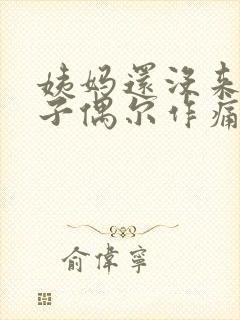 姨妈還沒来
子偶尔作痛
俞偉寧